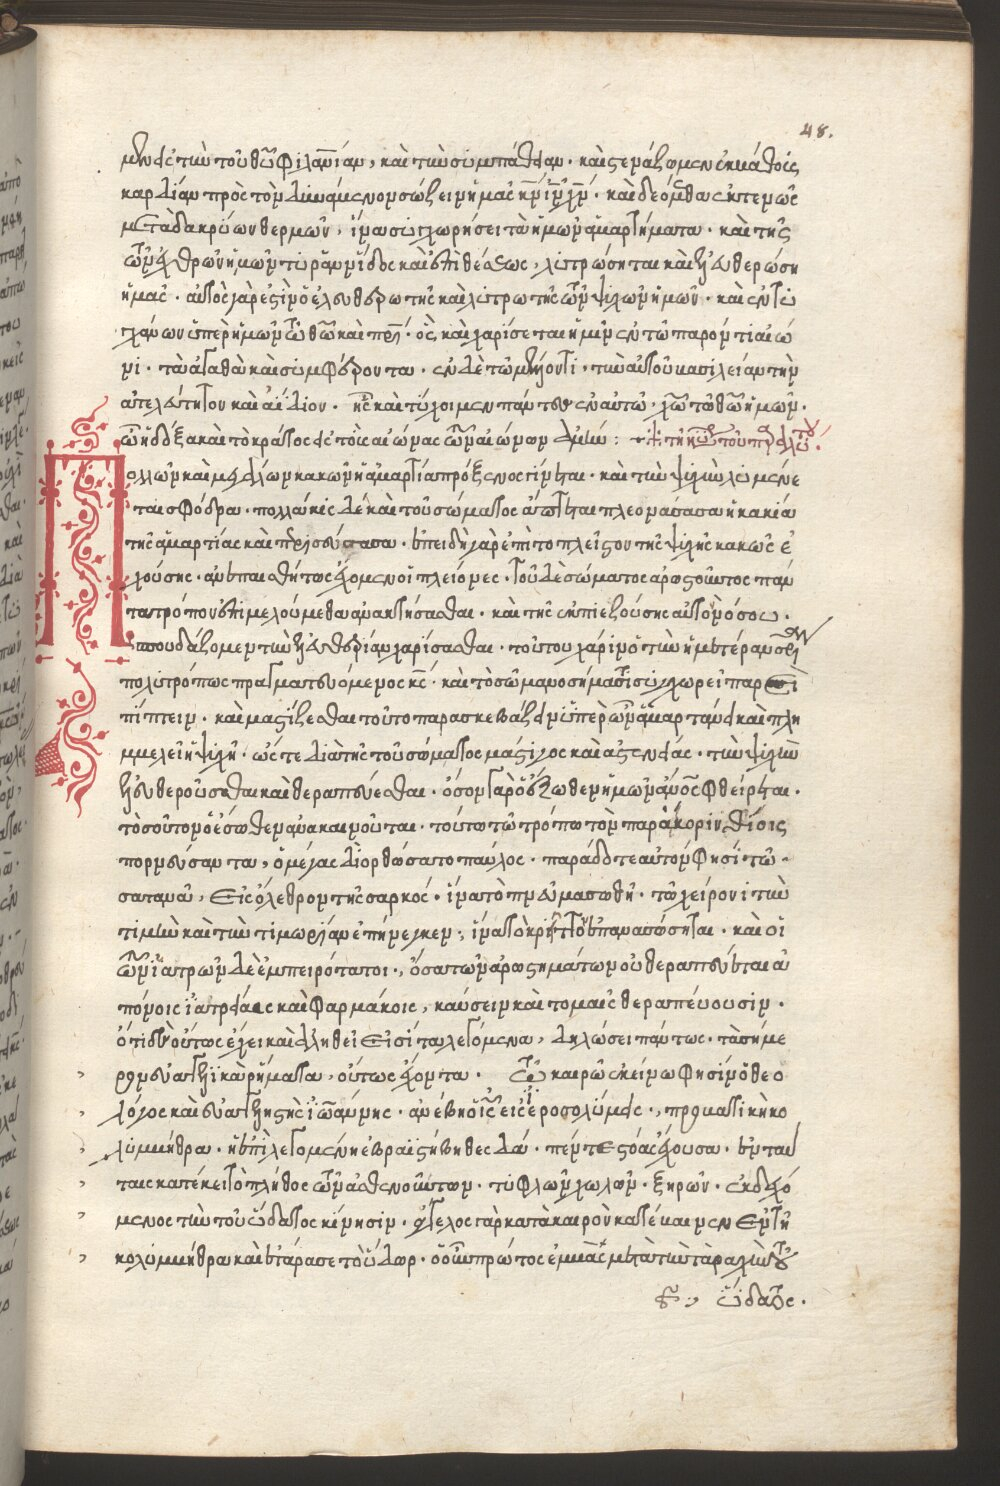 48.
μεν δὲ τὴν τοῦ θυ φιλανίαν, καὶ τὴν συμπάθειαν. καὶ στενάξωμεν ἐκ βάθους
καρδίαν πρὸς τὸν δυνάμενον σώζειν ἡμᾶς κν ιν χν. καὶ δεόμεθα ἐκτενῶς
μετὰ δακρύων θερμῶν, ἵνα συγχωρήσει τὰ ἡμῶν ἁμαρτήματα. καὶ τῆς
τῶν ἐχθρῶν ἡμῶν τυραννίδος καὶ ἐπιθέσεως, λυτρώσηται καὶ ἐλευθερώση
ἡμᾶς. αὐτὸς γάρ ἐστιν ὁ ἐλευθερωτὴς καὶ λυτρωτὴς τῶν ψυχῶν ἡμῶν. καὶ ἐντυ
γχάνων ὑπὲρ ἡμῶν τῶ θω καὶ πρι. ὃς καὶ χαρίσεται ἡμῖν ἐν τῶ παρόντι αἰῶ
νι. τὰ ἀγαθὰ καὶ συμφέροντα. ἐν δὲ τῶ μέλλοντι, τὴν αὐτοῦ βασιλείαν τὴν
ἀτελεύτητον καὶ ἀΐδιον. ἧς καὶ τύχοιμεν πάντες ἐν αὐτῶ. χω τῶ θω ἡμῶν.
ὧ ἡ δόξα καὶ τὸ κράτος εἰς τοὺς αἰῶνας τῶν αἰώνων ἀμήν: τῆ τοῦ παραλύτου.
Πολλῶν καὶ μεγάλων κακῶν ἡ ἁμαρτία πρόξενος γίνεται. καὶ τὴν ψυχὴν λυμαίνε
ται σφόδρα. πολλάκις δὲ καὶ τοῦ σώματος ἅπτεται πλεονάσασα ἡ κακία
τῆς ἁμαρτίας καὶ περισσεύσασα. ἐπειδὴ γὰρ ἐπὶ τὸ πλεῖστον τῆς ψυχῆς κακῶς ἐ
χούσης. ἀνεπαισθήτως ἔχομεν οἱ πλείονες. τοῦ δὲ σώματος ἀρωστοῦντος πάν
τα τρόπον ἐπιμελούμεθα ἀνακτήσασθαι. καὶ τῆς ἐπιεζούσης αὐτὸ νόσου.
σπουδάζομεν τὴν ἐλευθερίαν χαρίσασθαι. τούτου χάριν ὁ τὴν ἡμετέραν σριαν
πολυτρόπως πραγματευόμενος κς. καὶ τὸ σῶμα νοσήμασι συγχωρεῖ παρ
πίπτειν. καὶ μαστίζεσθαι τοῦτο παρασκευάζει ὑπὲρ ὧν ἁμαρτάνει καὶ πλη
μμελεῖ ἡ ψυχή. ὥστε διὰ τῆς τοῦ σώματος μάστιγος καὶ ἀσθενείας. τὴν ψυχὴν
ἐλευθεροῦσθαι καὶ θεραπεύεσθαι. ὅσον γὰρ ὁ ἔξωθεν ἡμῶν ανος φθείρεται.
τοσοῦτον ὁ ἔσωθεν ἀνακαινοῦται. τούτω τῶ τρόπω τὸν παρὰ κορινθίοις
πορνεύσαντα, ὁ μέγας διορθώσατο παῦλος. παράδοτε αὐτόν φησι τῶ
σατανᾶ, εἰς ὄλεθρον τῆς σαρκός. ἵνα τὸ πνεῦμα σωθῆ. τῶ χείρονι τὴν
τιμὴν καὶ τὴν τιμωρίαν ἐπήνεγκεν. ἵνα τὸ κρεῖττον ἐπανασώσηται. καὶ οἱ
τῶν ἰατρῶν δὲ ἐμπειρότατοι, ὅσα τῶν ἀρωστημάτων οὐ θεραπεύεται ἀ
πόνοις ἰατρείαις καὶ φαρμάκοις, καύσειν καὶ τομαῖς θεραπεύουσιν.
ὅτι δὲ οὕτως ἔχει καὶ ἀληθεῖ εἰσὶ τὰ λεγόμενα, δηλώσει πάντως. τὰ σήμε
ρον εὐαγγελικὰ ῥήματα, οὕτως ἔχοντα. Τῶ καιρῶ ἐκείνω φησὶν ὁ θεο
λόγος καὶ εὐαγγελιστὴς ἰωάννης. ἀνέβη ὁ ις εἰς ἱεροσολύμα, προβατικὴ κο
λυμβήθρα. ἡ ἐπιλεγομένη ἑβραϊστὶ βηθεσδά. πέντε στοὰς ἔχουσα. ἐν ταύ
ταις κατέκειτο πλῆθος τῶν ἀσθενούντων. τυφλῶν χωλῶν. ξηρῶν. ἐκδεχό
μενος τὴν τοῦ ὕδατος κίνησιν. ἄγγελος γὰρ κατὰ καιρὸν κατέβαινεν ἐν τῆ
κολυμβήθρα καὶ ἐτάρασσε τὸ ὕδωρ. ὁ οὖν πρῶτος ἐμβὰς μετὰ τὴν ταραχὴν τοῦ
ὕδατος.